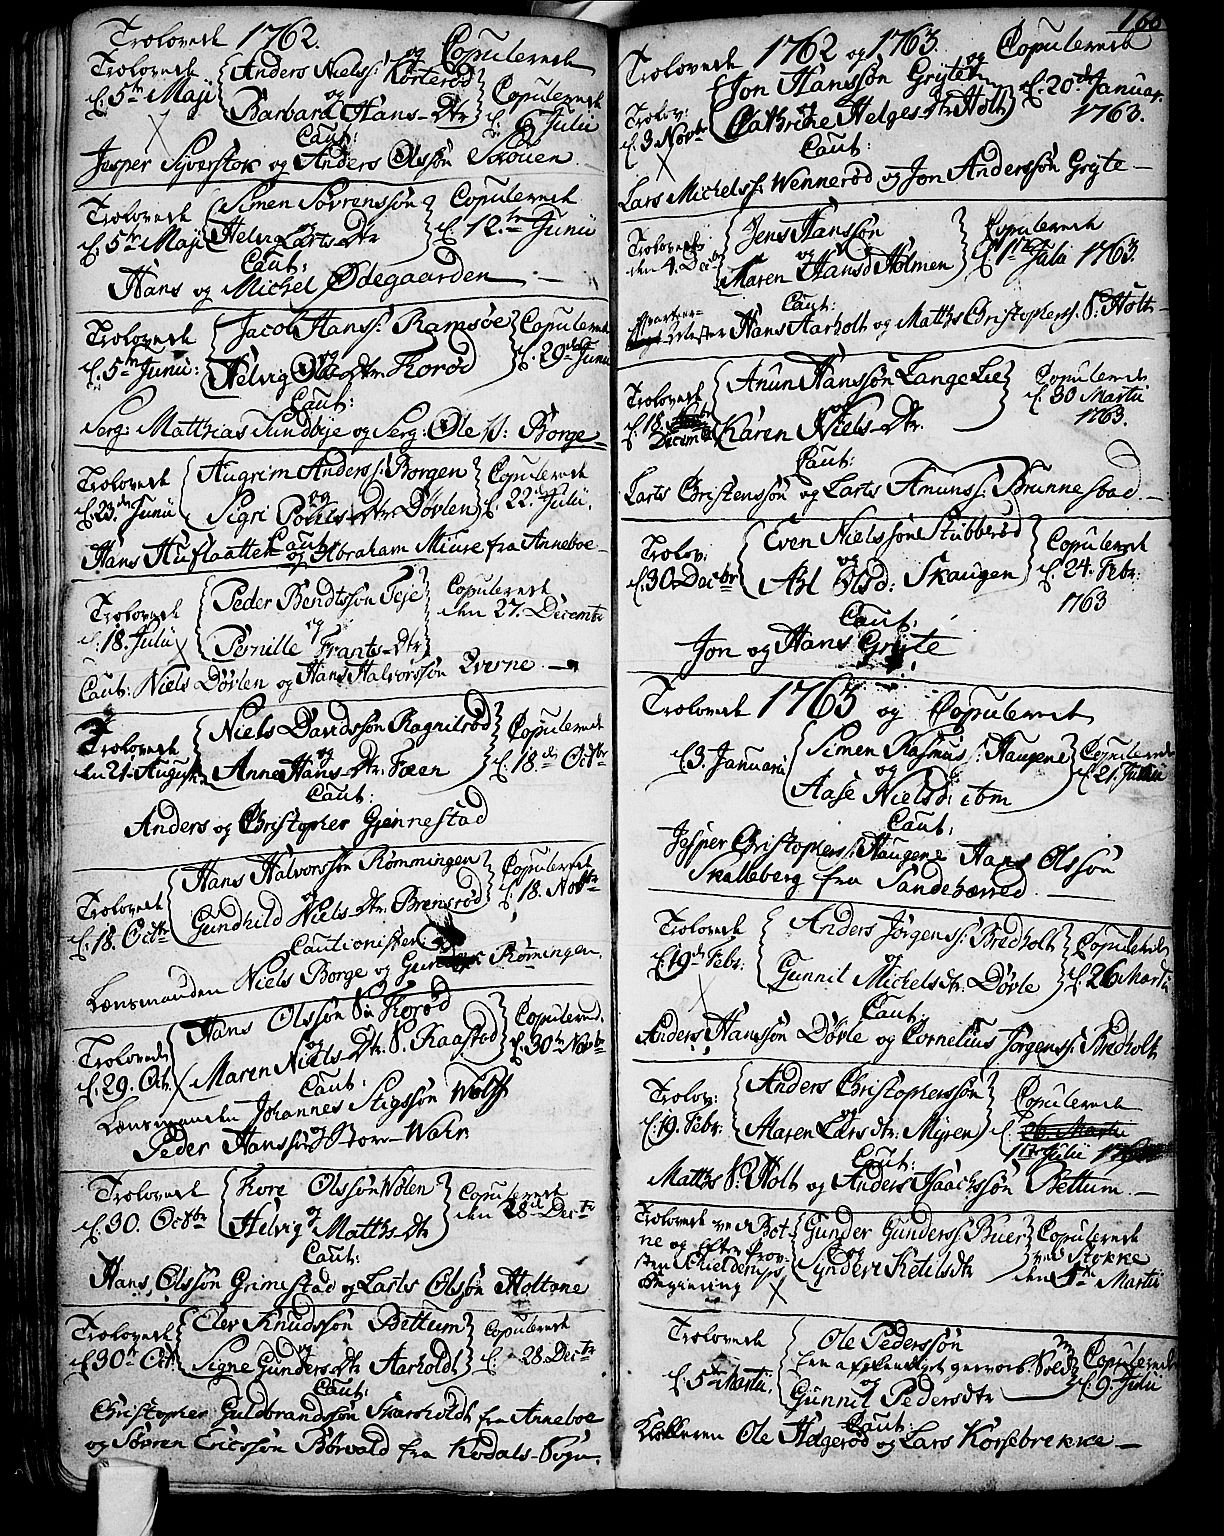 Trolovede 1762. og Copulerede
Trolovede d. 5te Maji
Anders Niels: Korterød
og
Barbara Hans-Dtr
Copulerede d. 6 Julii
Caut:
Jesper Syverstok og Anders Olssøn Skouen
Trolovede d. 5te Maji
Simen Sovrenssøn
og
Helvig Larts-Dtr
Copulerede d. 12te Junii
Caut:
Hans og Michel Ødegaarden
Trolovede d. 5te Junii:
Jacob Hanss: Ramsøe
og
Helvig Ols-Dtr Korød
Copulerede d. 29de Junii
Caut:
Serg: Matthias Sundbye og Serg: Ole N: Borge
Trolovede d. 23de Junii
Augrim Anderss: Borgen
og
Sigri Povels-Dtr Døvlen
Copulerede d. 22de Julii.
Caut:
Hans Huflaatten og Abraham Miure fra Anneboe
Trolovede d. 18. Julii
Peder Bendtssøn Teje
og
Pernille Frants-Dtr
Copulerede den 27. Decembr
Caut: Niels Døvlen og Hans Halvorssøn Qverne
Trolovede den 21. August
Niels Davidssøn Ragnilrød
og
Anne Hans-Dtr Foeen
Copulerede d. 18de Octbr
Caut:
Anders og Christopher Gjennestad
Trolovede d. 18. Octbr
Hans Halvorssøn Rømmingen
og
Gundhild Niels-Dtr Brensrød
Copulerede d. 18. Novbr
Cautionister
Lænsmanden Niels Borge og Gunder Rømingen.
Trolovede d. 29. Oct.
Hans Olssøn S: Korød
og
Maren Niels-Dtr S. Raastad
Copulered. d. 30te Novbr
Caut:
Lænsmanden Johannes Stigssøn Wolff
og
Peder Hanssøn Store-Wahr
Trolovede d. 30. Octbr
Kore Olssøn Wølen
og
Helvig Matths-Dtr
Copulerede den 28de Decbr
Caut:
Hans Olssøn Grimestad og Larts Olssøn Holtane
Trolovede d. 30te Oct:
Elev Knudssøn Bettum
og
Signe Gunders-Dtr Aarholdt
Copulerede d. 28. Decbr
Caut:
Christopher Guldbrandssøn Skarsholdt fra Anneboe
og Søvren Ericssøn Børvald fra Kodals-Sogn.
166
Trolovede 1762 og 1763. og Copulerede
Trolov: d. 3 Novbr
Jon Hanssøn Gryte
og
Cathrine Helges-Dtr Holt
d. 20de Januar. 1763.
Caut:
Lars Michelss: Wennerød og Jon Anderssøn Gryte
Trolovede den 4. Dec:
Jens Hanssøn
og
Maren Hansd Holmen
Copulerede d. 1ste Julii 1763.
Caut:
Mester Hans Aarholt og Matths Christophers: S. Holt
Trolovede d. 18. Decembr
Anun Hanssøn Lange Lie
og
Karen Niels-Dtr
Copulerede d. 30 Martii 1763.
Caut:
Larts Christenssøn og Larts Amunss: Brunnestad
Trolov: d. 30. Decbr
Even Nielssøn Stubberød
og
Axl Olsd: Skaugen
Copulerede d. 24. Febr: 1763
Caut:
Jon og Hans Gryte
Trolovede 1763 og Copulerede
d. 3. Januarii
Simen Rasmus: Haugene
og
Aase Nielsd: ibm
Copulerede d. 21. Julii
Caut:
Jesper Christophers: Haugene Hans Olssøn
Skalleberg fra Sandeherred
Trolovede d. 19de Febr:
Anders Jørgenss: Bredholt
og
Gunnil Michelsdtr: Døvle
Copulerede d. 26 Martii
Caut:
Anders Hanssøn Døvle og Cornelius Jorgenss: Bredholt
Trolov: d. 19. Febr:
Anders Christopherssøn
og
Maren Larsdtr: Myren
Copulerede d. 26. Martii
Julii
Caut:
Matths S. Holt og Anders Isaachssøn Bettum.
Trolovede ved Botne og Efter Provsten Schieldrups Begiering
Gunder Gunderss: Buer
og
Synderi Ketilsdtr
Copulerede ved Stokke den 4de Martii
Trolovede d. 5te Martii,
Ole Pederssøn
Een gevorb: Sold:
og
Gunnil Pedersdtr
Copulerede d. 9. Julii
Caut:
Klokkeren Ole Helgerød og Lars Korsebrekke